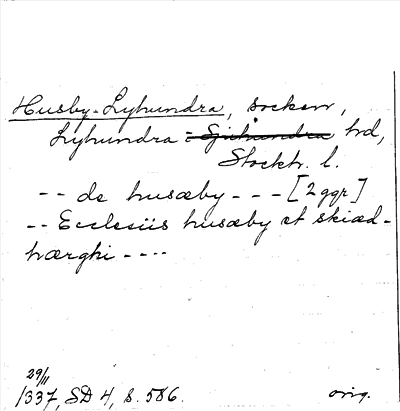 Husby-Lyhundra, socken,
Lyhundra hd,
Stockh. l.
-- de husæby --- [2 ggr]
-- Ecclesiis husæby et skiæd-
hærghi ----
29/11
1337, SD 4, s. 586. orig.